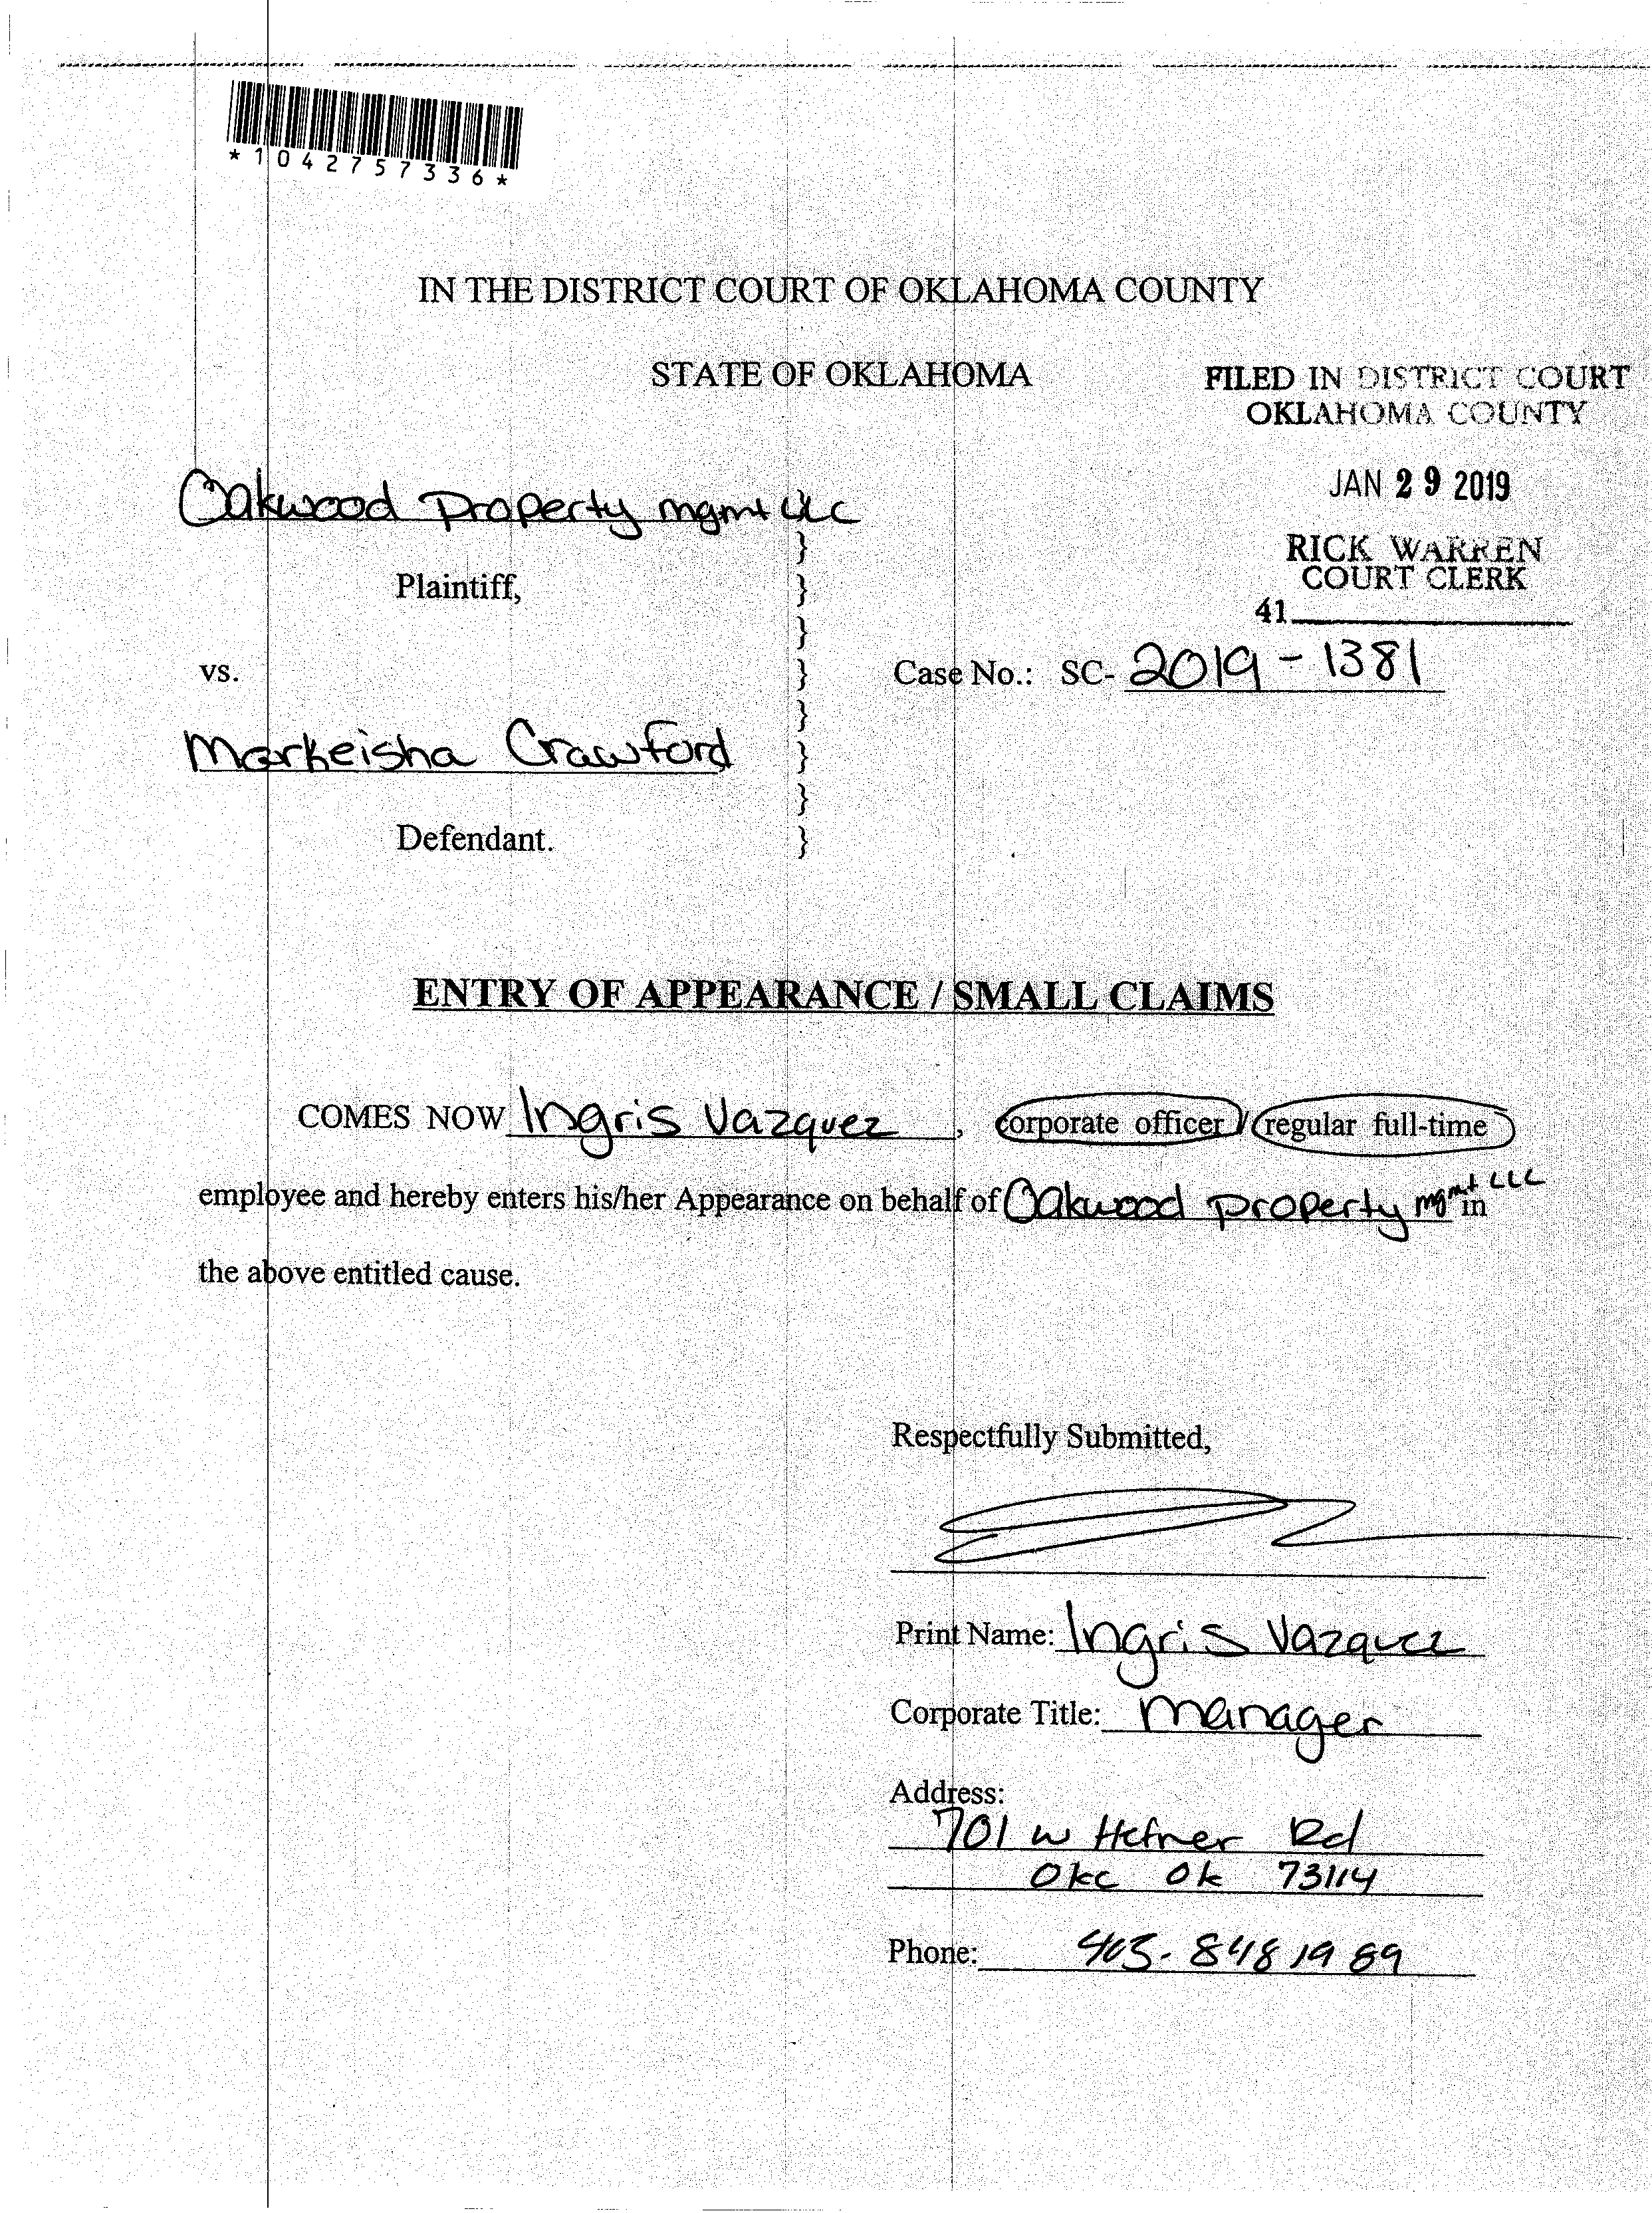 *1042757336*
IN THE DISTRICT COURT OF OKLAHOMA COUNTY
STATE OF OKLAHOMA
FILED IN DISTRICT COURT
OKLAHOMA COUNTY
JAN 29 2019
RICK WARREN
COURT CLERK
41
Oakwood Property mgmt LLC
}
Plaintiff, }
}
vs. } Case No.: SC- 2019-1381
}
Markeisha Crawford }
}
Defendant. }
ENTRY OF APPEARANCE / SMALL CLAIMS
COMES NOW Ingris Vazquez, corporate officer / regular full-time
employee and hereby enters his/her Appearance on behalf of Oakwood property mgmt LLC in
the above entitled cause.
Respectfully Submitted,
Print Name: Ingris Vazquez
Corporate Title: manager
Address:
701 w Hefner Rd
Okc Ok 73114
Phone: 405-848 1989